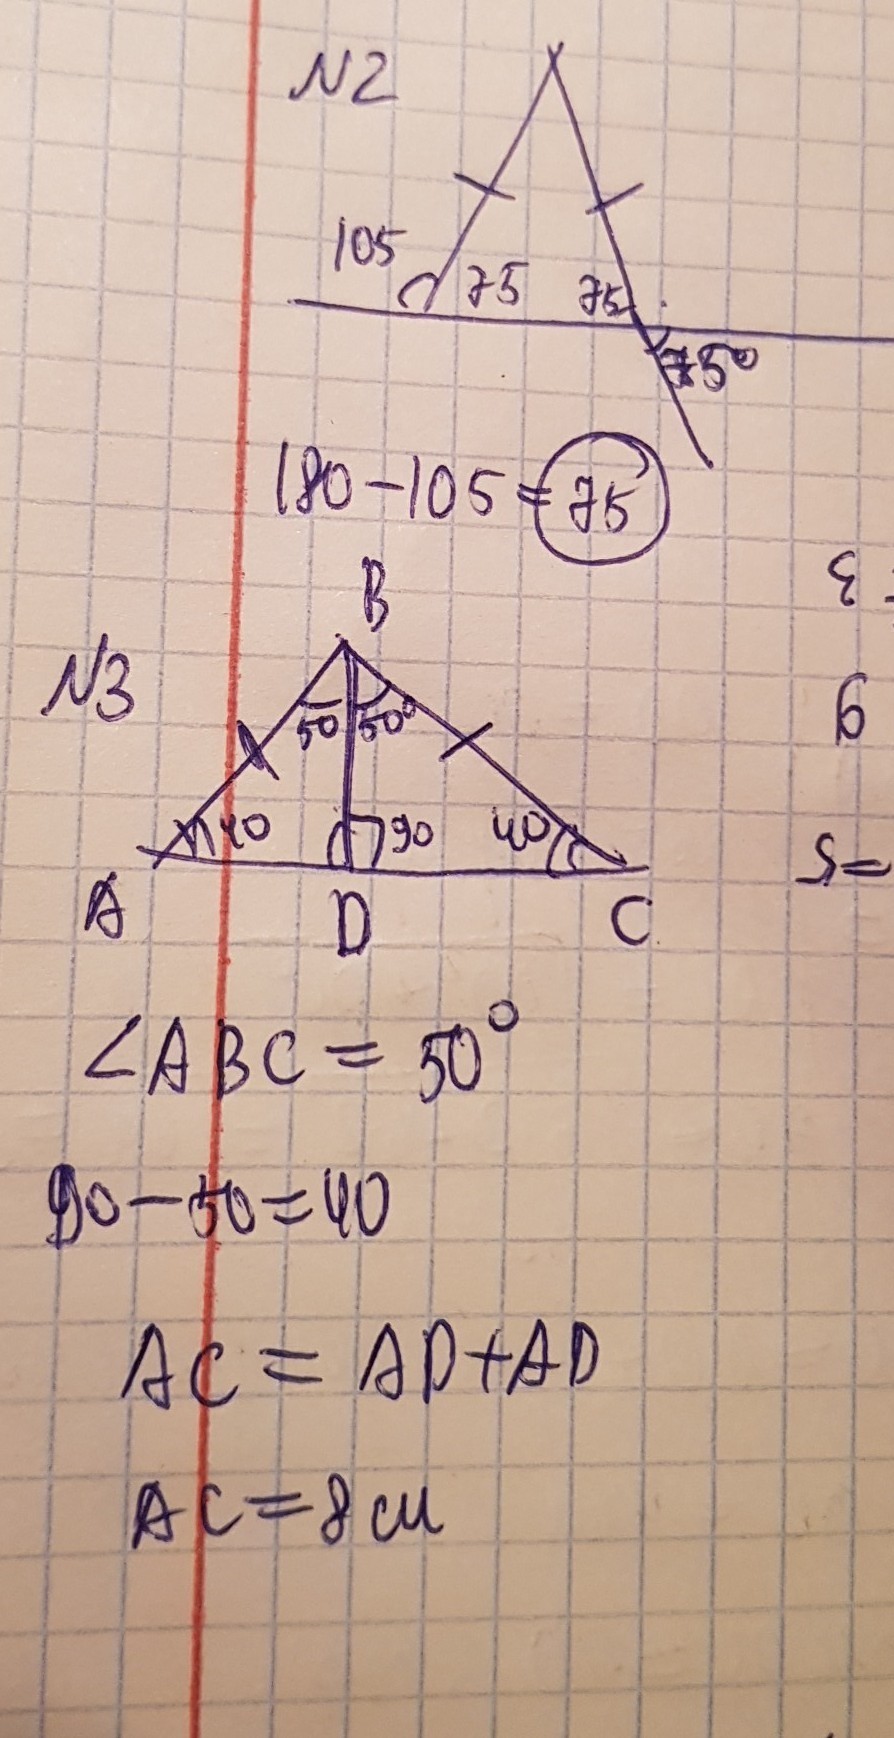 N2
105
75
75
75°
180-105=75
N3
B
50
50°
40
90
40
A
D
C
∠ABC = 50°
90-50=40
AC = AD+AD
AC=8 см